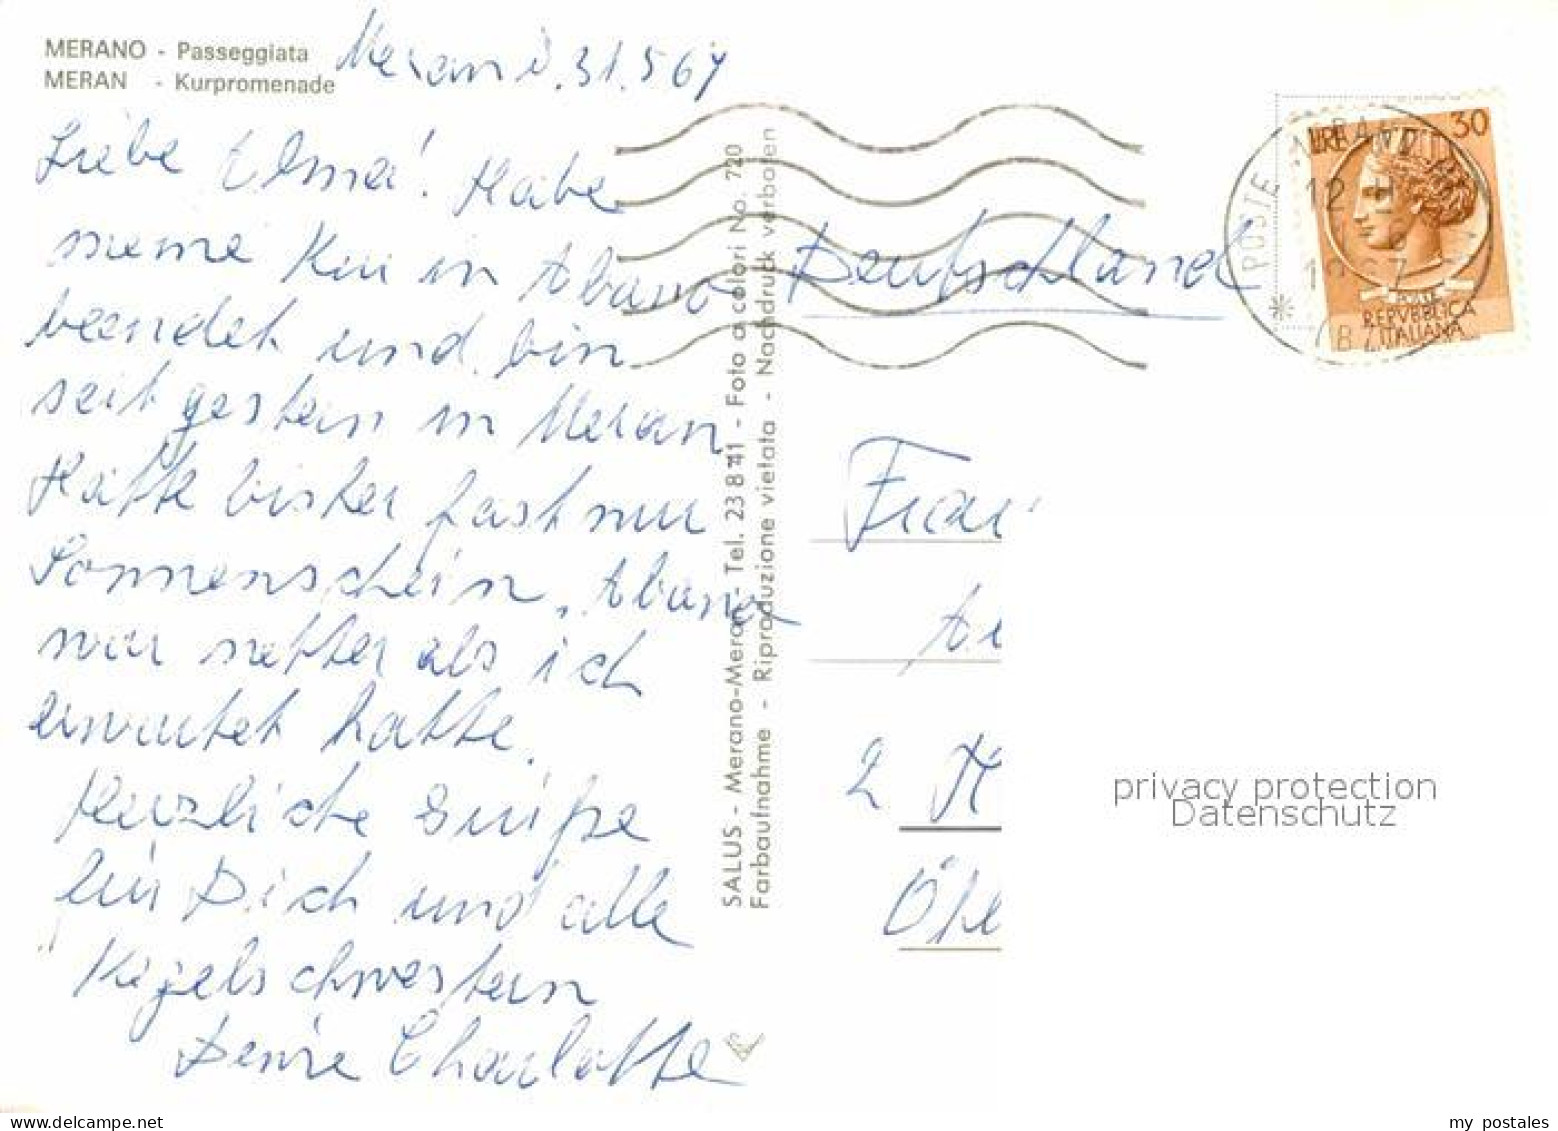 MERANO - Passeggiata
MERAN - Kurpromenade
Meran d. 31.5 67
Liebe Elma! Habe
meine Kur in Abano
beendet und bin
seit gestern in Meran.
Hatte bisher fast nur
Sonnenschein. Abano
war netter als ich
erwartet hatte.
Herzliche Grüße
für Dich und alle
"Kegelschwestern
Deine Charlotte
SALUS - Merano-Meran - Tel. 23 8 41 - Foto a colori No. 720
Farbaufnahme - Riproduzione vietata - Nachdruck verboten
Deutschland
POSTE
12
1967
(BZ)
LIRE 30
POSTE
REPVBBLICA
ITALIANA
Frau
2 H
privacy protection
Datenschutz
my postales